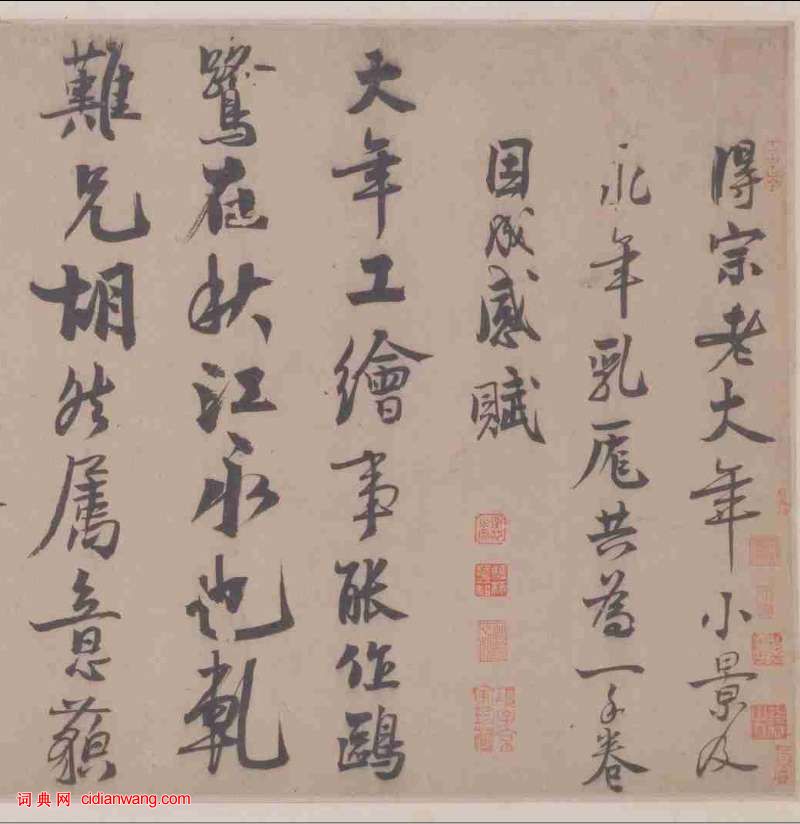 得宗老大年小景及
永年乳雁共為一手卷
因成感賦
大年工繪事能作鷗
鷺在秋江永也乳
難兄胡然属意蘋
词典网 cidianwang.com